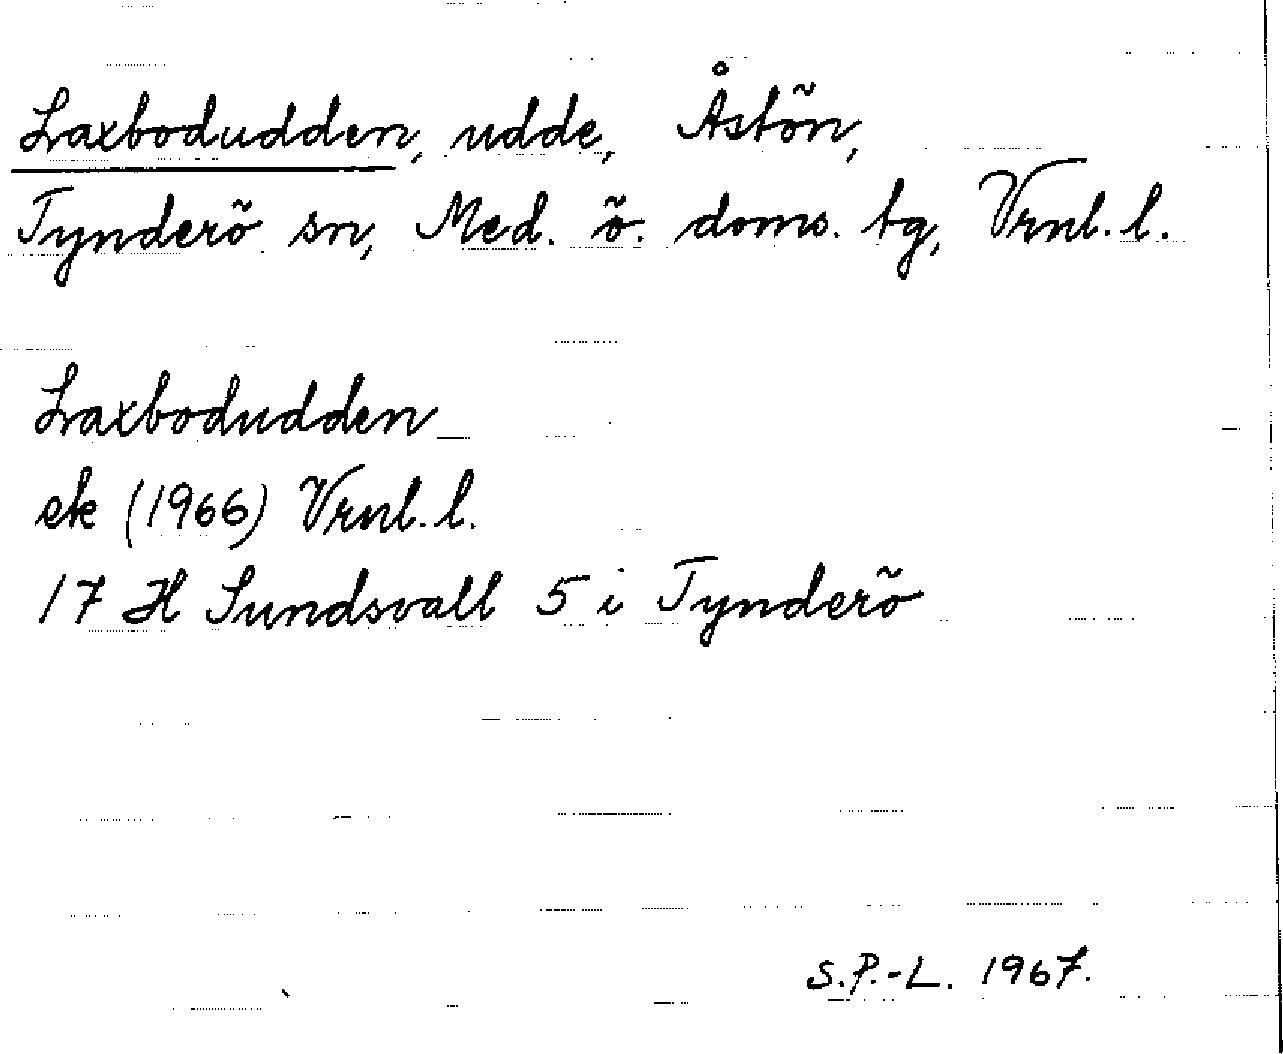 Laxbodudden, udde, Åstön,
Tynderö sn, Med. ö. doms. tg, Vrnl. l.
Laxbodudden
ek (1966) Vrnl. l.
17 H Sundsvall 5 i Tynderö
S.P.-L. 1967.